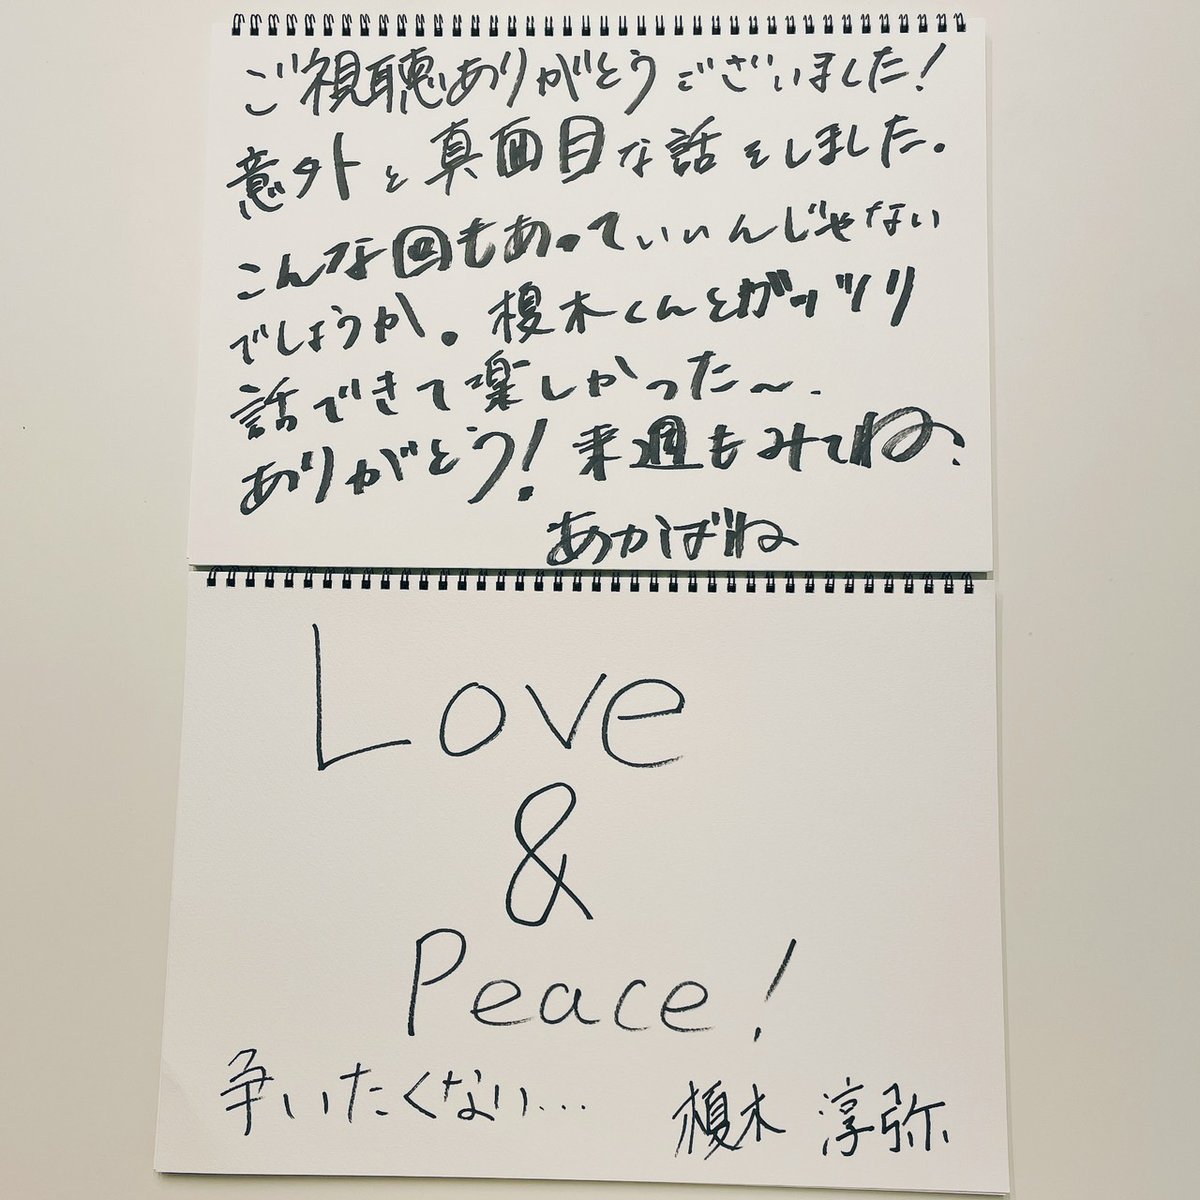 ご視聴ありがとうございました!
意外と真面目な話をしました。
こんな回もあっていいんじゃない
でしょうか。榎木くんとガッツリ
話できて楽しかった〜.
ありがとう!来週もみてね.
あかばね
Love
&
Peace!
争いたくない...
榎木 淳弥